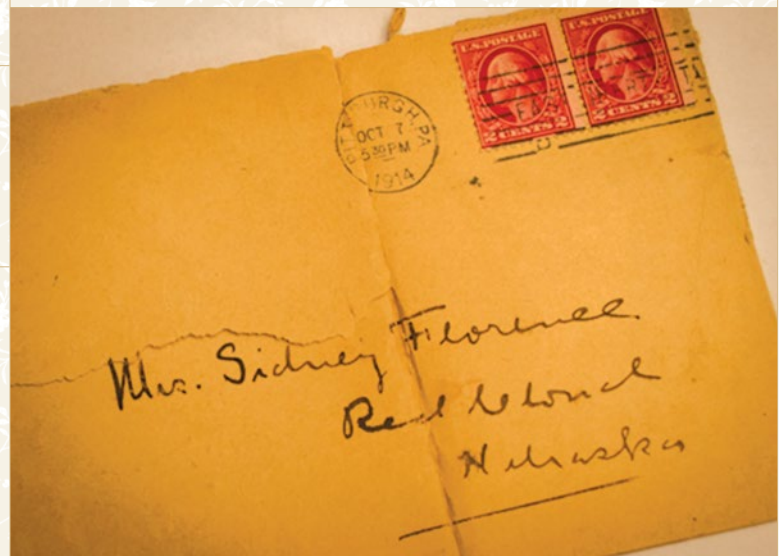 U.S. POSTAGE
2 CENTS 2
U.S. POSTAGE
2 CENTS 2
PITTSBURGH, PA
OCT 7
5 30 PM
1914
Mrs. Sidney Florence
Red Cloud
Nebraska